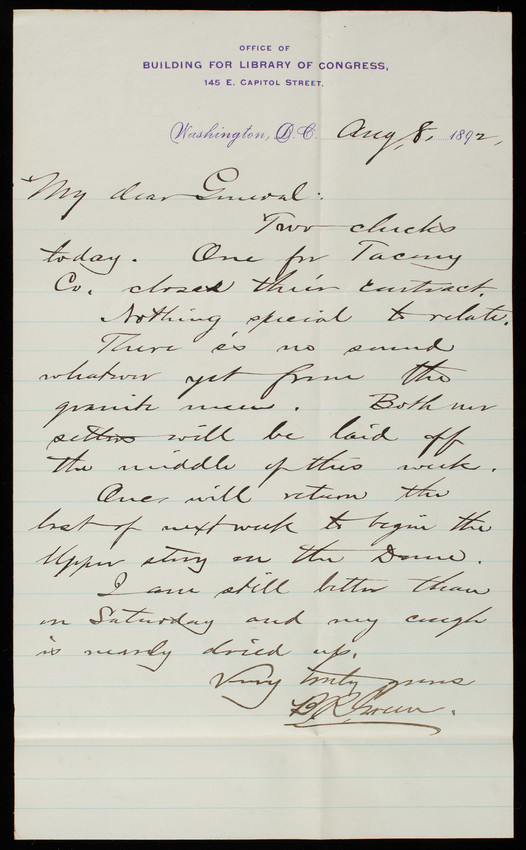 OFFICE OF
BUILDING FOR LIBRARY OF CONGRESS,
145 E. CAPITOL STREET.
Washington, D.C. Aug. 8, 1892,
My dear General:
Two checks
today. One for Tacony
Co. closes their contract.
Nothing special to relate.
There is no sound
whatever yet from the
granite men. Both our
setters will be laid off
the middle of this week.
One will return the
last of next week to begin the
Upper story on the Dome.
I am still better than
on Saturday and my cough
is nearly dried up.
Very truly yours
B. R. Green.